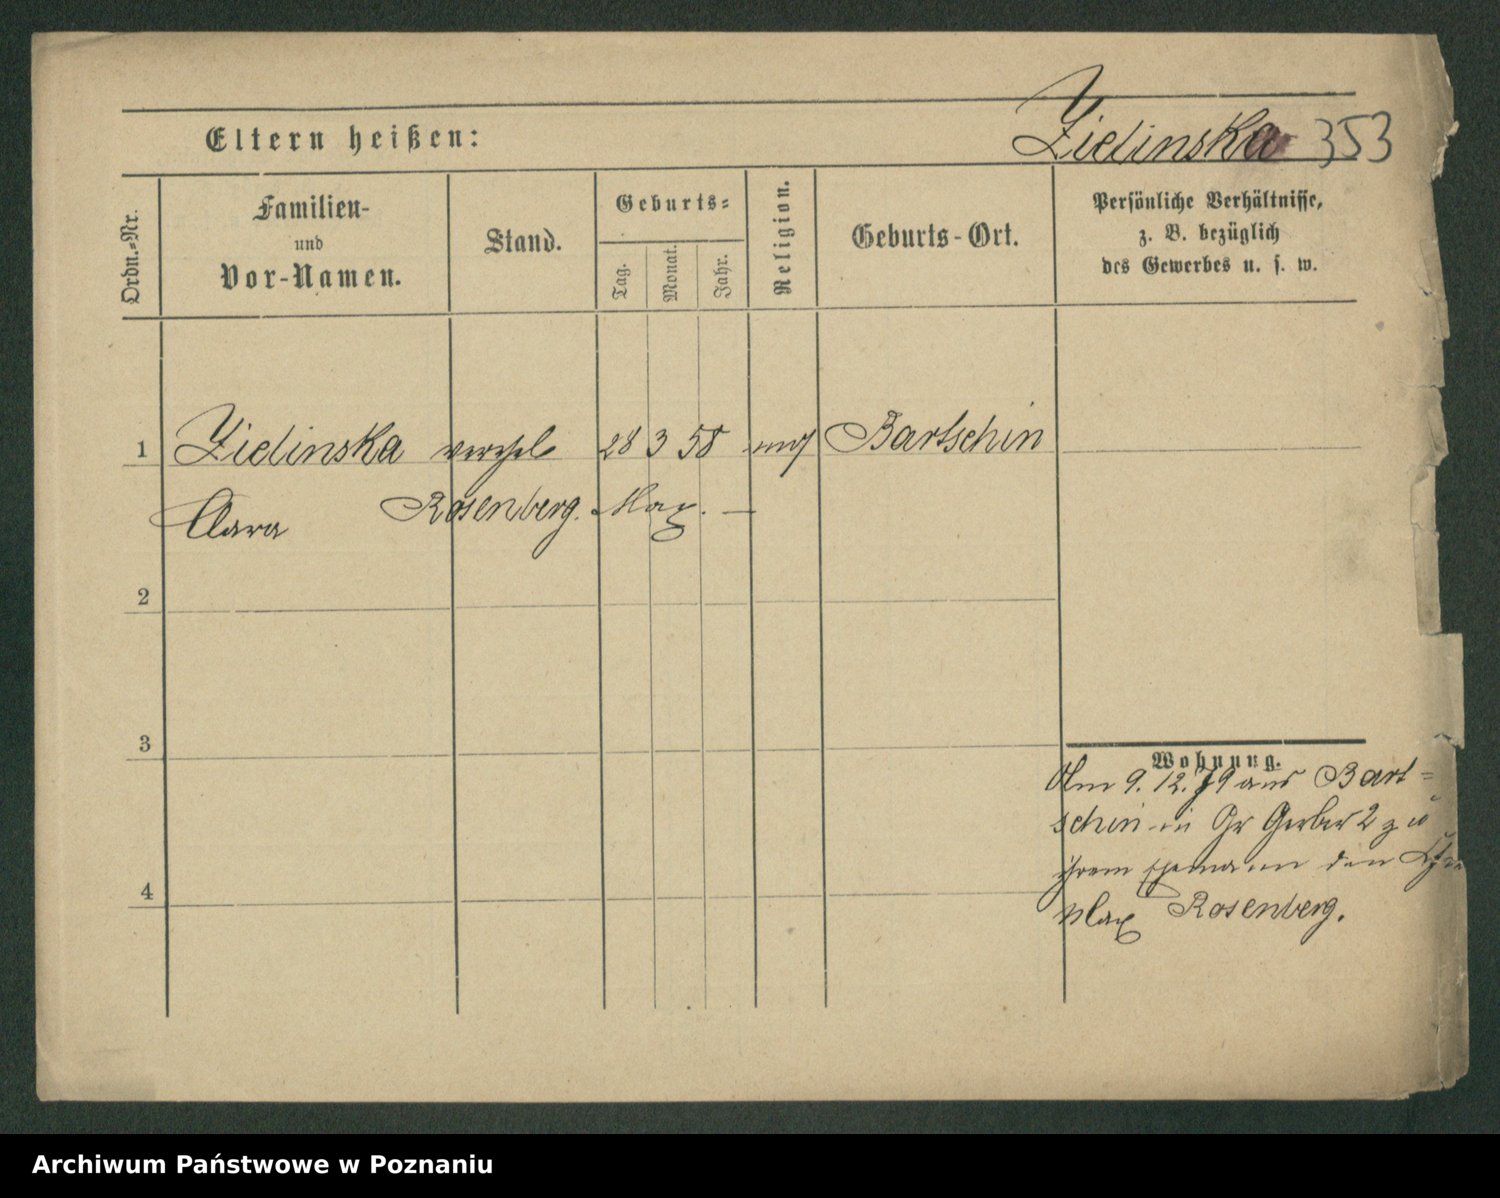 Zielinska 353
Eltern heißen:
Ordn.=Nr.
Familien-
und
Vor-Namen.
Stand.
Geburts=
Tag.
Monat.
Jahr.
Religion.
Geburts-Ort.
Persönliche Verhältnisse,
z. B. bezüglich
des Gewerbes u. s. w.
1 Zielinska verehel 28 3 58 Bartschin
Clara Rosenberg. Max. —
2
3
4
Wohnung.
Am 9. 12. 79 aus Bart=
schin in Gr Gerber 2 zu
ihrem Ehemann den
Max Rosenberg.
Archiwum Państwowe w Poznaniu